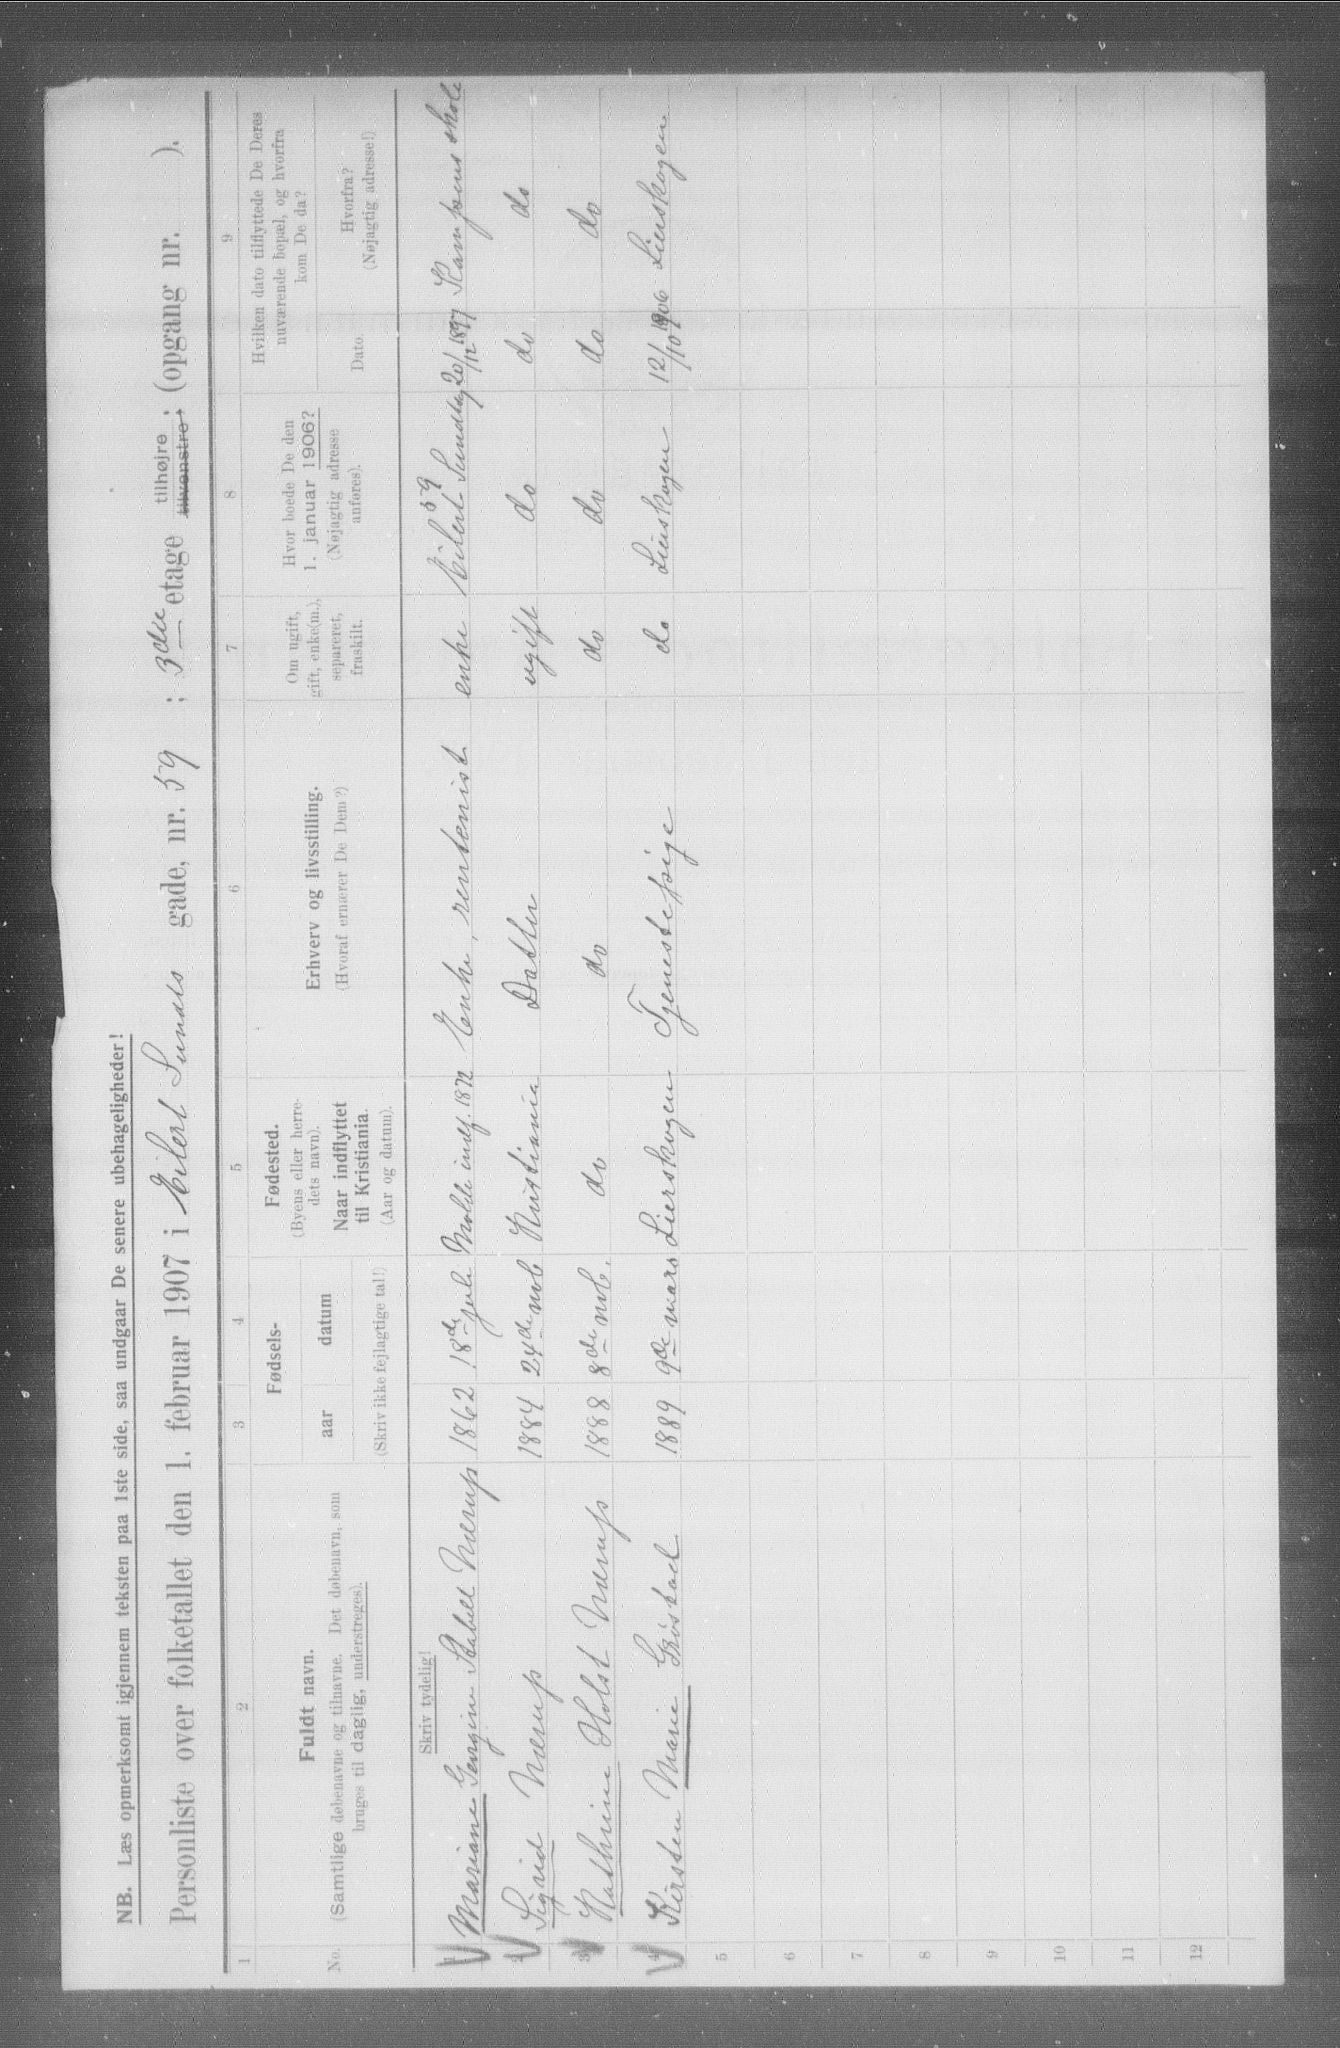 NB. Læs opmerksomt igjennem teksten paa 1ste side, saa undgaar De senere ubehageligheder!
Personliste over folketallet den 1. februar 1907 i Eilert Sundts gade, nr. 59 ; 3die etage tilhøjre, tilvenstre, (opgang nr. ).
1 2 3 4 5 6 7 8 9
No.
Fuldt navn.
(Samtlige døbenavne og tilnavne. Det døbenavn, som
bruges til daglig, understreges).
Fødsels-
aar datum
(Skriv ikke fejlagtige tal!)
Fødested.
(Byens eller herre-
dets navn).
Naar indflyttet
til Kristiania.
(Aar og datum).
Erhverv og livsstilling.
(Hvoraf ernærer De Dem?)
Om ugift,
gift, enke(m.),
separeret,
fraskilt.
Hvor boede De den
1. januar 1906?
(Nøjagtig adresse
anføres).
Hvilken dato tilflyttede De Deres
nuværende bopæl, og hvorfra
kom De da?
Dato.
Hvorfra?
(Nøjagtig adresse!)
Skriv tydelig!
1 Mariane Georgine Stabell Nærup 1862 18de juli Molde indf. 1872 Enke, rentenist enke Eilert Sundtsg 59 20/12 1897 Kampens skole
2 Sigrid Nærup 1884 24de nob Kristiania Datter ugift do do do
3 Kathrine Holst Nærup 1888 8de nob. do do do do do do
4 Kirsten Marie Gröstad 1889 9de mars Lierskogen Tjenestepige do Lierskogen 12/10 1906 Lierskogen
5
6
7
8
9
10
11
12